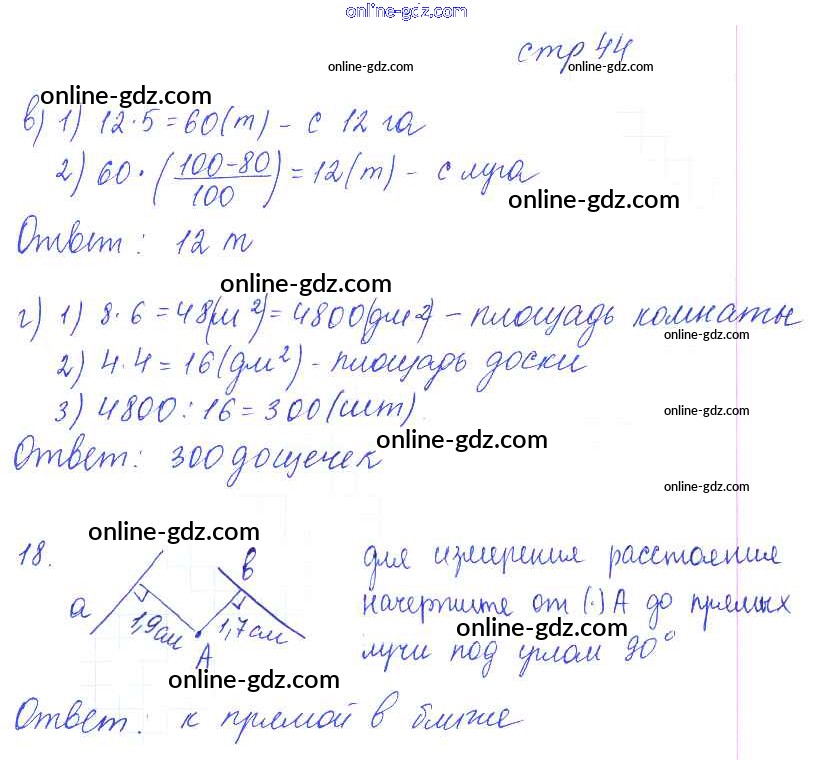 online-gdz.com
стр 44
online-gdz.com
online-gdz.com
online-gdz.com
в) 1) 12·5=60(т) - с 12 га
2) 60·(100-80/100)=12(т) - с луга
online-gdz.com
Ответ: 12 т
online-gdz.com
г) 1) 8·6=48(м²)=4800(дм²) - площадь комнаты
online-gdz.com
2) 4·4=16(дм²) - площадь доски
3) 4800:16=300(шт).
online-gdz.com
online-gdz.com
Ответ: 300 дощечек
online-gdz.com
online-gdz.com
18.
а
в
1,9см
1,7см
А
для измерения расстояния
начертите от (·) А до прямых
online-gdz.com
лучи под углом 90°
online-gdz.com
Ответ: к прямой в ближе